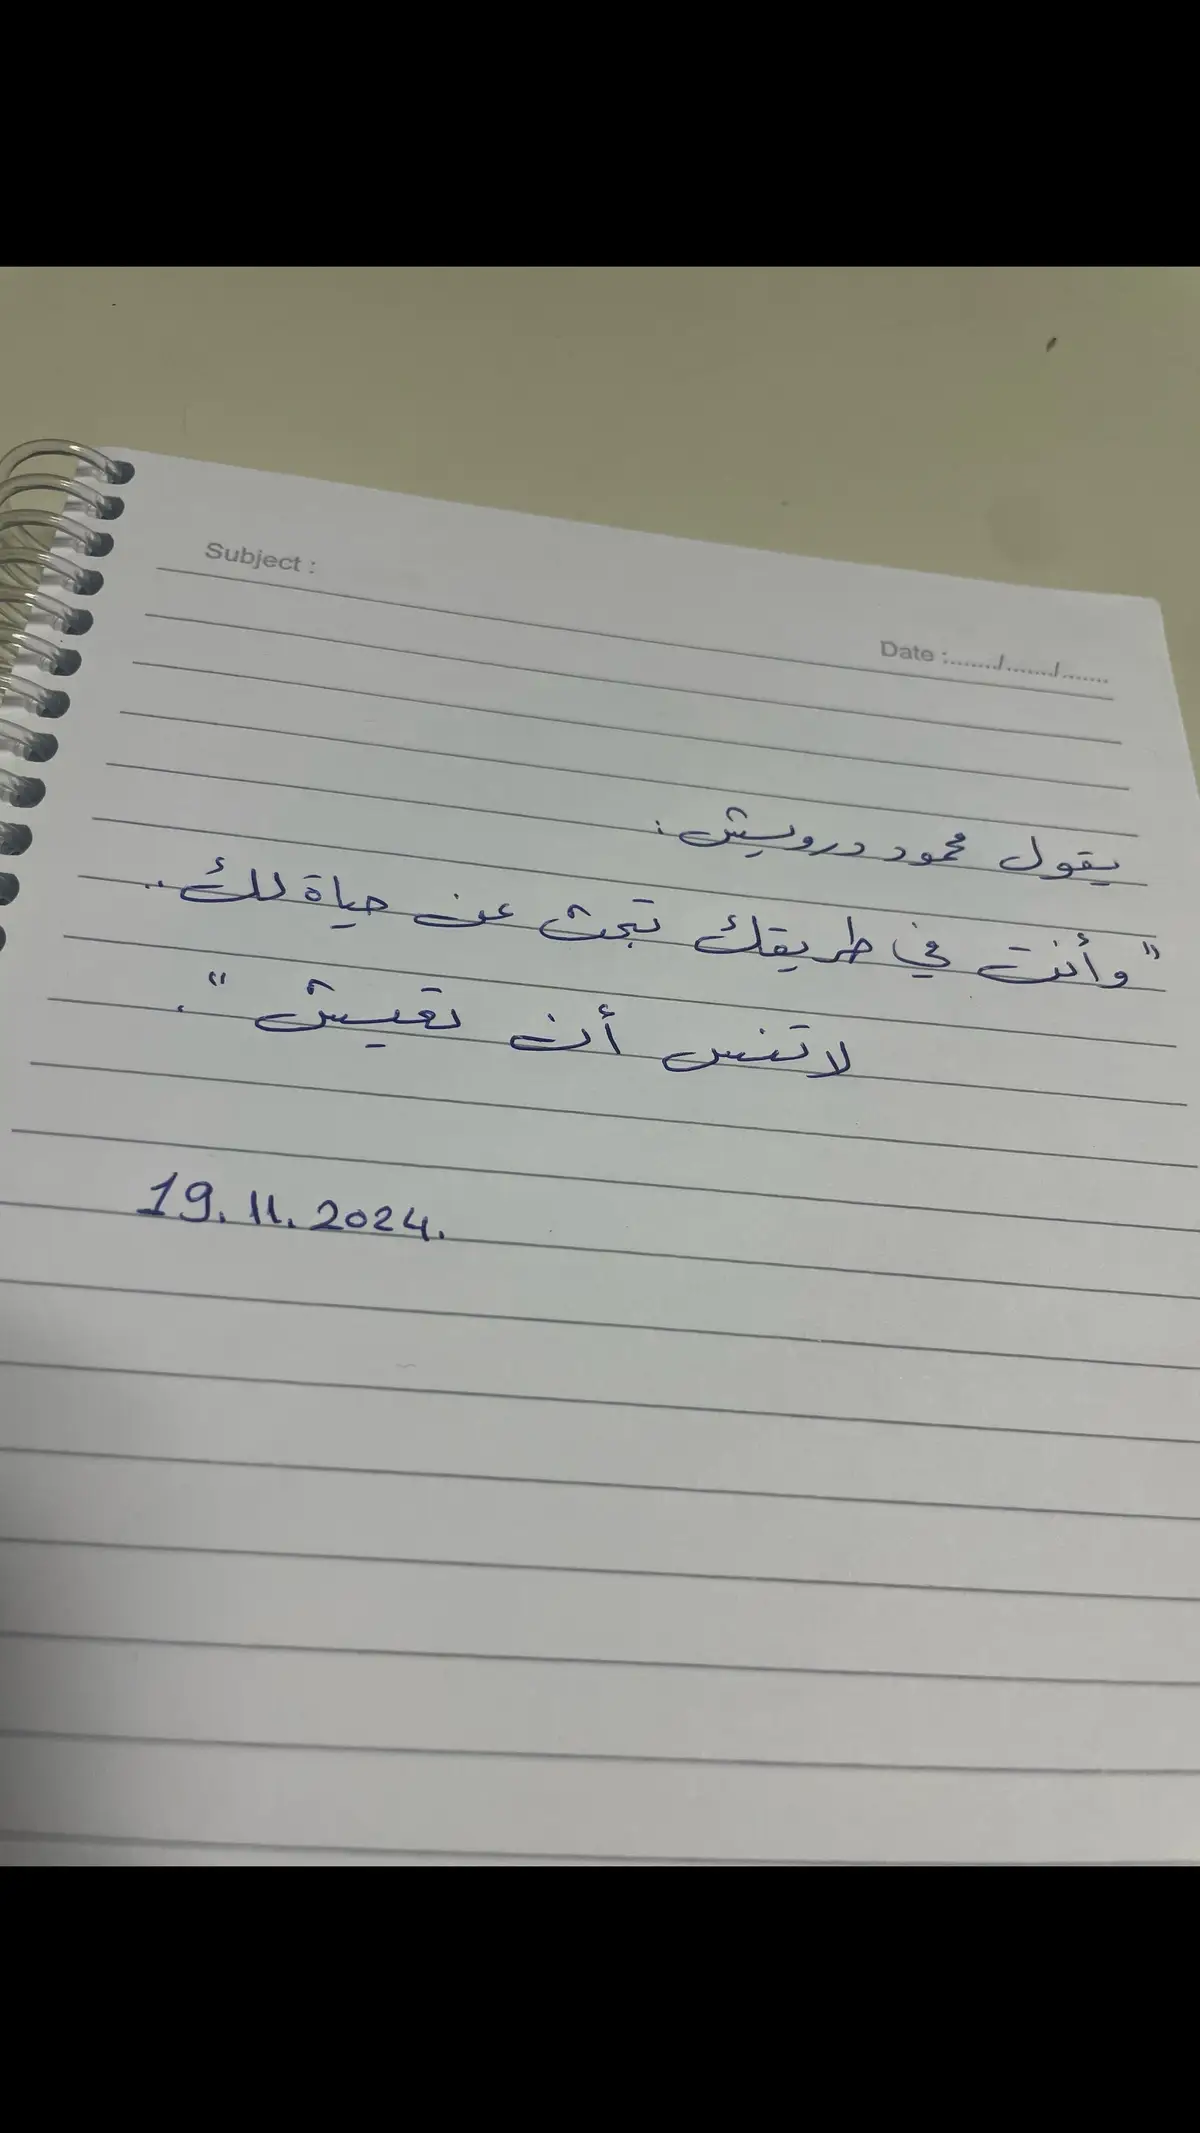 Subject :
Date :......../......../.......
يقول محمود درويش :
"وأنت في طريقك تبحث عن حياة لك ..
لا تنس أن تعيش" .
19. 11. 2024.